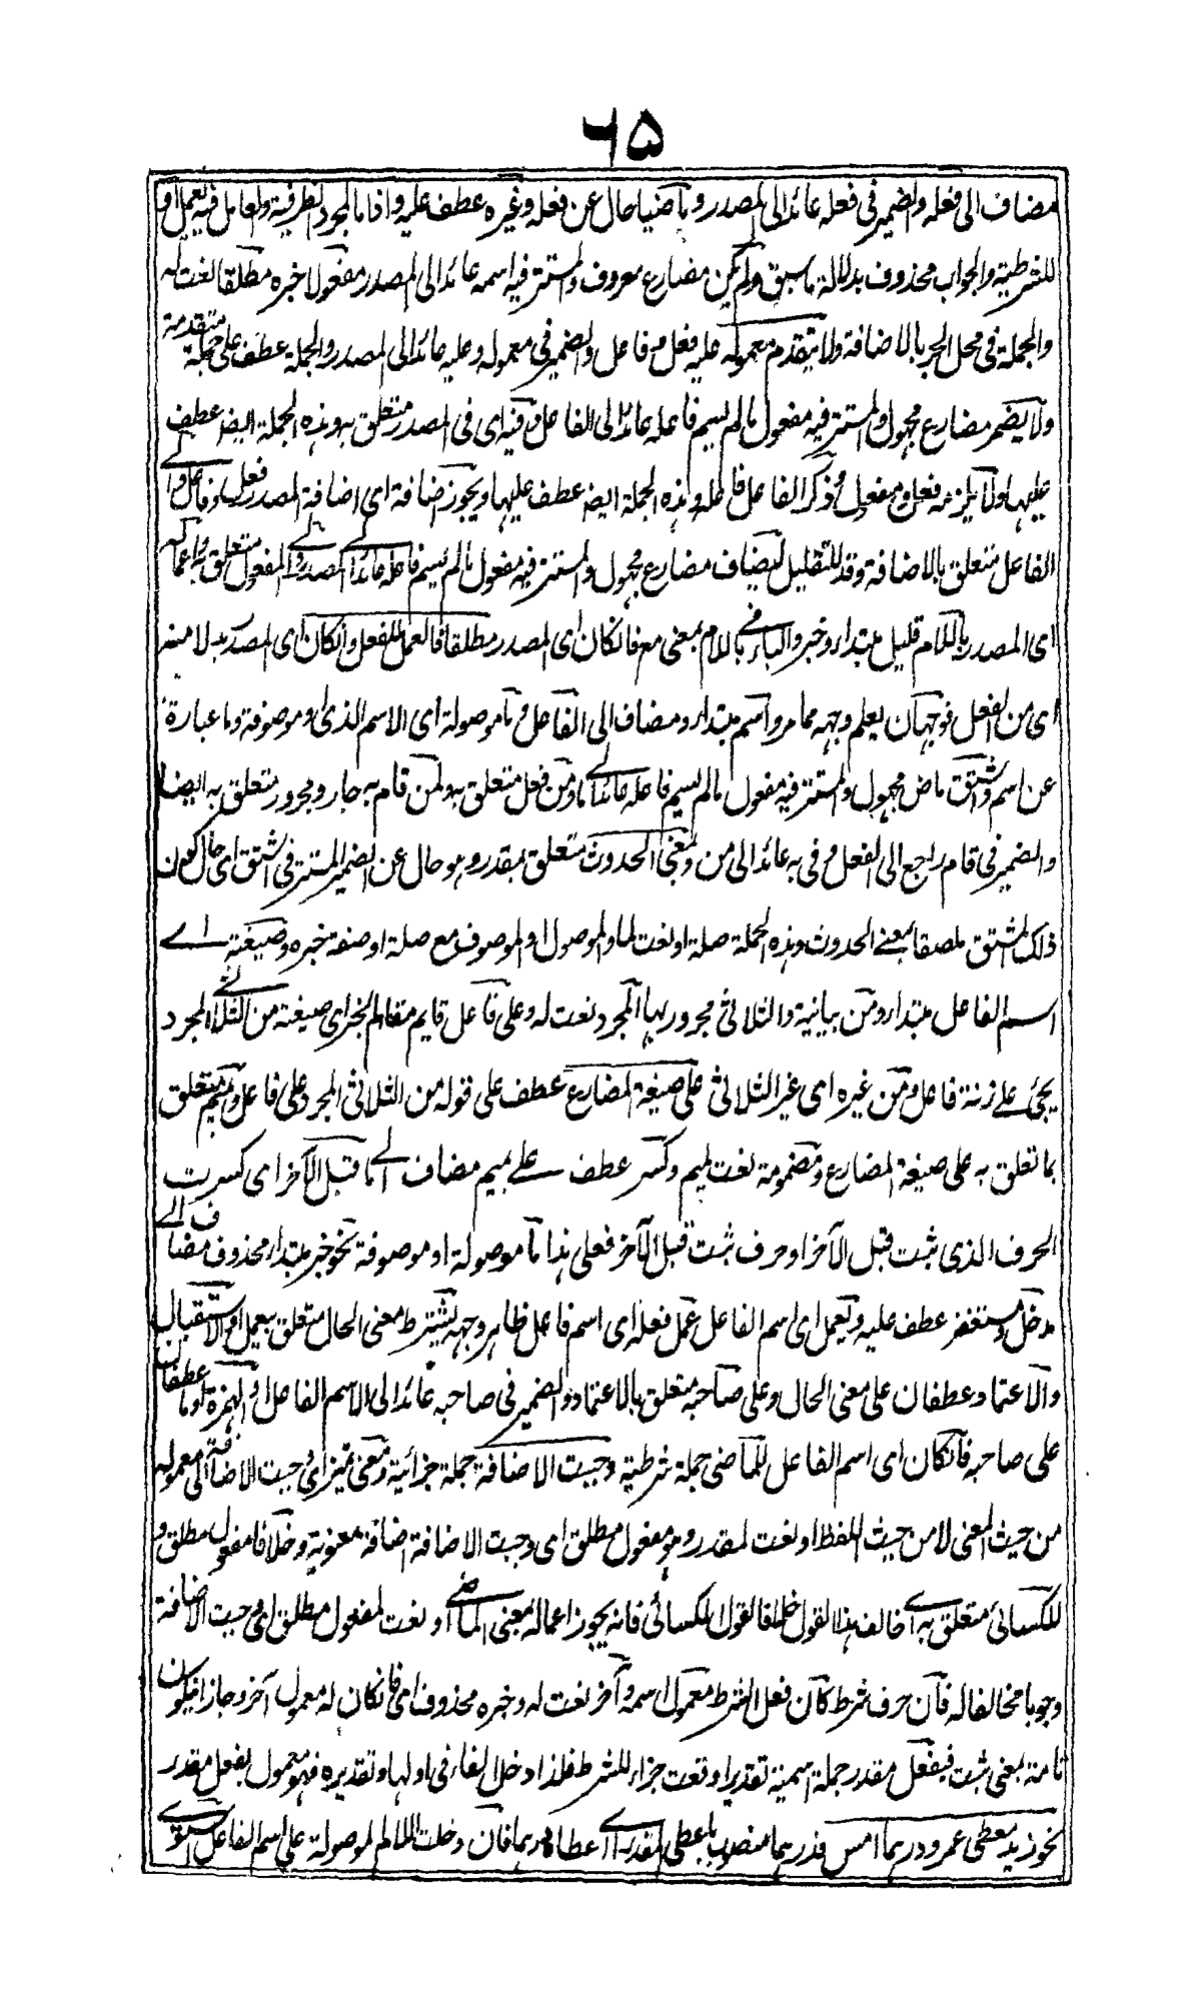 ۶۵
مضاف الى فعله والضمير فى فعله عائد الى المصدر وماضيا حال عن فعله وغيره عطف عليه واذا ما لمجرد الظرفية والعامل فيه يعمل او
للشرطية والجواب محذوف بدلالة ما سبق ولم يكن مضارع معروف والمستتر فيه اسمه عائد الى المصدر مفعولا خبره مطلقا نعت له
والجملة فى محل الجر بالاضافة ولا يتقدم معموله عليه فعل وفاعل والضمير فى معموله وعليه عائد الى المصدر والجملة عطف على جملة متقدمة
ولا يضمر مضارع مجهول والمستتر فيه مفعول ما لم يسم فاعله عائد الى الفاعل وفيه اى فى المصدر متعلق به وهذه الجملة ايضا عطف
عليها ولا يلزم فعل ومفعول وذكر الفاعل فاعله وهذه الجملة ايضا عطف عليها ويجوز اضافة اى اضافة المصدر فعل وفاعل والى
الفاعل متعلق بالاضافة وقد للتقليل يضاف مضارع مجهول والمستتر فيه مفعول ما لم يسم فاعله عائد الى المصدر والى المفعول متعلق به واعماله
اى المصدر باللام قليل مبتداء وخبر والباء فى باللام بمعنى مع فان كان اى المصدر مطلقا فالعمل للفعل وان كان اى المصدر بدلا منه
اى من الفعل فوجهان يعلم وجهه مما مر واسم مبتداء ومضاف الى الفاعل وما موصولة اى الاسم الذى او موصوفة وما عبارة
عن اسم واشتق ماض مجهول والمستتر فيه مفعول ما لم يسم فاعله عائد الى ما ومن فعل متعلق به ولمن قام به جار ومجرور متعلق به ايضا
والضمير فى قام راجع الى الفعل وفى به عائد الى من وبمعنى الحدوث متعلق بمقدر وهو حال عن الضمير المستتر فى اشتق اى حال كون
ذلك المشتق ملصقا بمعنى الحدوث وهذه الجملة صلة او نعت لما والموصول او الموصوف مع صلة او صفة خبره وصيغته اى
اسم الفاعل مبتداء ومن بيانية والثلاثى مجرور بها المجرد نعت له وعلى فاعل قايم مقام الخبر اى صيغته من الثلاثى المجرد
يجئ على زنة فاعل ومن غيره اى غير الثلاثى على صيغة المضارع عطف على قوله من الثلاثى المجرد على فاعل وبميم متعلق
بما تعلق به على صيغة المضارع ومضمومة نعت لميم وكسر عطف على بميم مضاف الى ما قبل الآخر اى كسرت
الحرف الذى ثبت قبل الآخر او حرف ثبت قبل الآخر فعلى هذا ما موصولة او موصوفة نحو خبر مبتداء محذوف مضاف الى
مدخل ومستغفر عطف عليه ويعمل اى اسم الفاعل عمل فعله اى اسم فاعل ظاهر وجهه بشرط معنى الحال متعلق بيعمل او الاستقبال
والاعتماد عطفان على معنى الحال وعلى صاحبه متعلق بالاعتماد والضمير فى صاحبه عائد الى الاسم الفاعل او الهمزة او ما عطفان
على صاحبه فان كان اى اسم الفاعل للماضى جملة شرطية وجبت الاضافة جملة جزائية ومعنى تميز اى وجبت الاضافة الى معموله
من حيث المعنى لا من حيث اللفظ او نعت لمقدر وهو مفعول مطلق اى وجبت الاضافة اضافة معنوية وخلافا مفعول مطلق و
للكسائى متعلق به اى اخالف هذا القول خلافا لقول الكسائى فانه يجوز اعماله بمعنى الماضى او نعت لمفعول مطلق اى وجبت الاضافة
وجوبا مخالفا له فان حرف شرط كان فعل الشرط معمول اسمه وآخر نعت له وخبره محذوف اى فان كان له معمول آخر وجاز ان يكون
تامة بمعنى ثبت فبفعل مقدر جملة اسمية تقديرا وقعت جزاء للشرط فلذا دخل الفاء فى اولها وتقديره فهو معمول بفعل مقدر
نحو زيد معطى عمرو درهما امس فدرهما منصوب باعطى المقدر اى اعطاه درهما فان دخلت اللام الموصولة على اسم الفاعل استوى